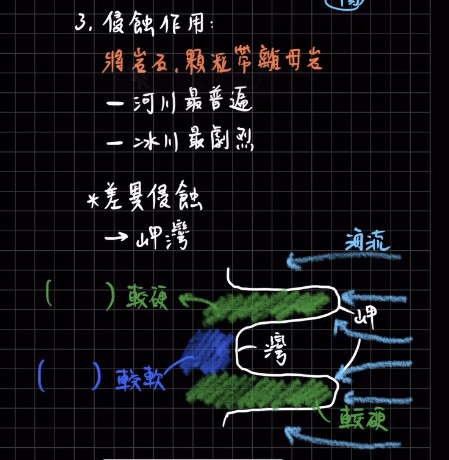 3. 侵蝕作用:
將岩石、顆粒帶離母岩
– 河川最普遍
– 冰川最劇烈
*差異侵蝕
→ 岬灣
海流
(  ) 較硬
岬
灣
(  ) 較軟
較硬